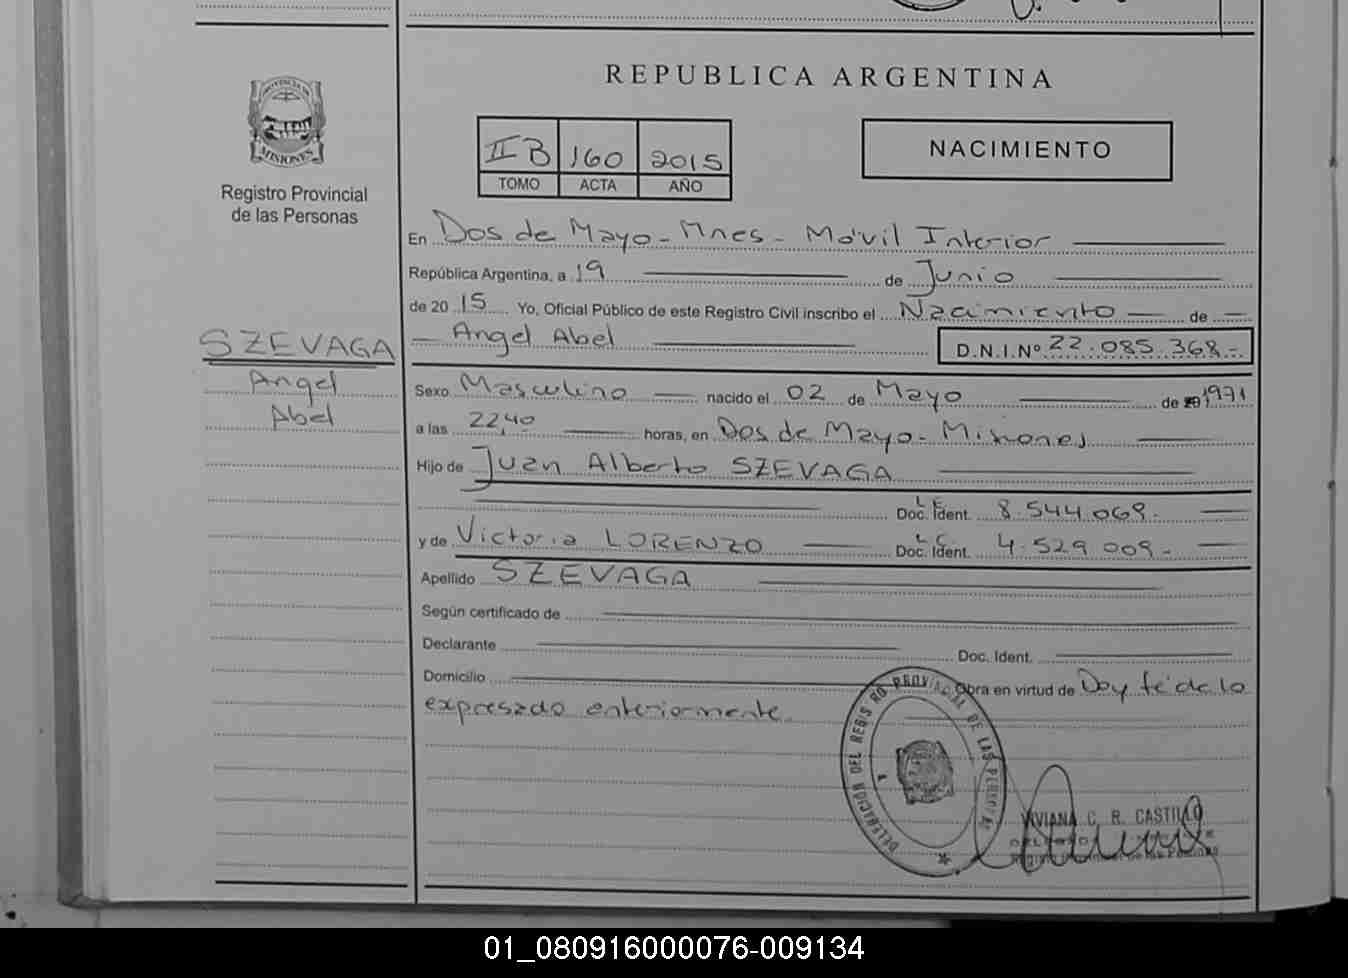 PROVINCIA DE
MISIONES
Registro Provincial
de las Personas
SZEVAGA
Angel
Abel
REPUBLICA ARGENTINA
II B 160 2015
TOMO ACTA AÑO
NACIMIENTO
En Dos de Mayo - Mnes - Móvil Interior
República Argentina, a 19 de Junio
de 20 15 Yo, Oficial Público de este Registro Civil inscribo el Nacimiento de
Angel Abel D.N.I.Nº 22.085.368.-
Sexo Masculino nacido el 02 de Mayo de 20 1971
a las 22,40 horas, en Dos de Mayo - Misiones
Hijo de Juan Alberto SZEVAGA
L.E.
Doc. Ident. 8.544.069.-
L.C.
y de Victoria LORENZO Doc. Ident. 4.529.009.-
Apellido SZEVAGA
Según certificado de
Declarante Doc. Ident.
Domicilio Obra en virtud de Doy fé de lo
expresado anteriormente.
DELEGACION DEL REGISTRO PROVINCIAL DE LAS PERSONAS
VIVIANA C. R. CASTILLO
01_080916000076-009134